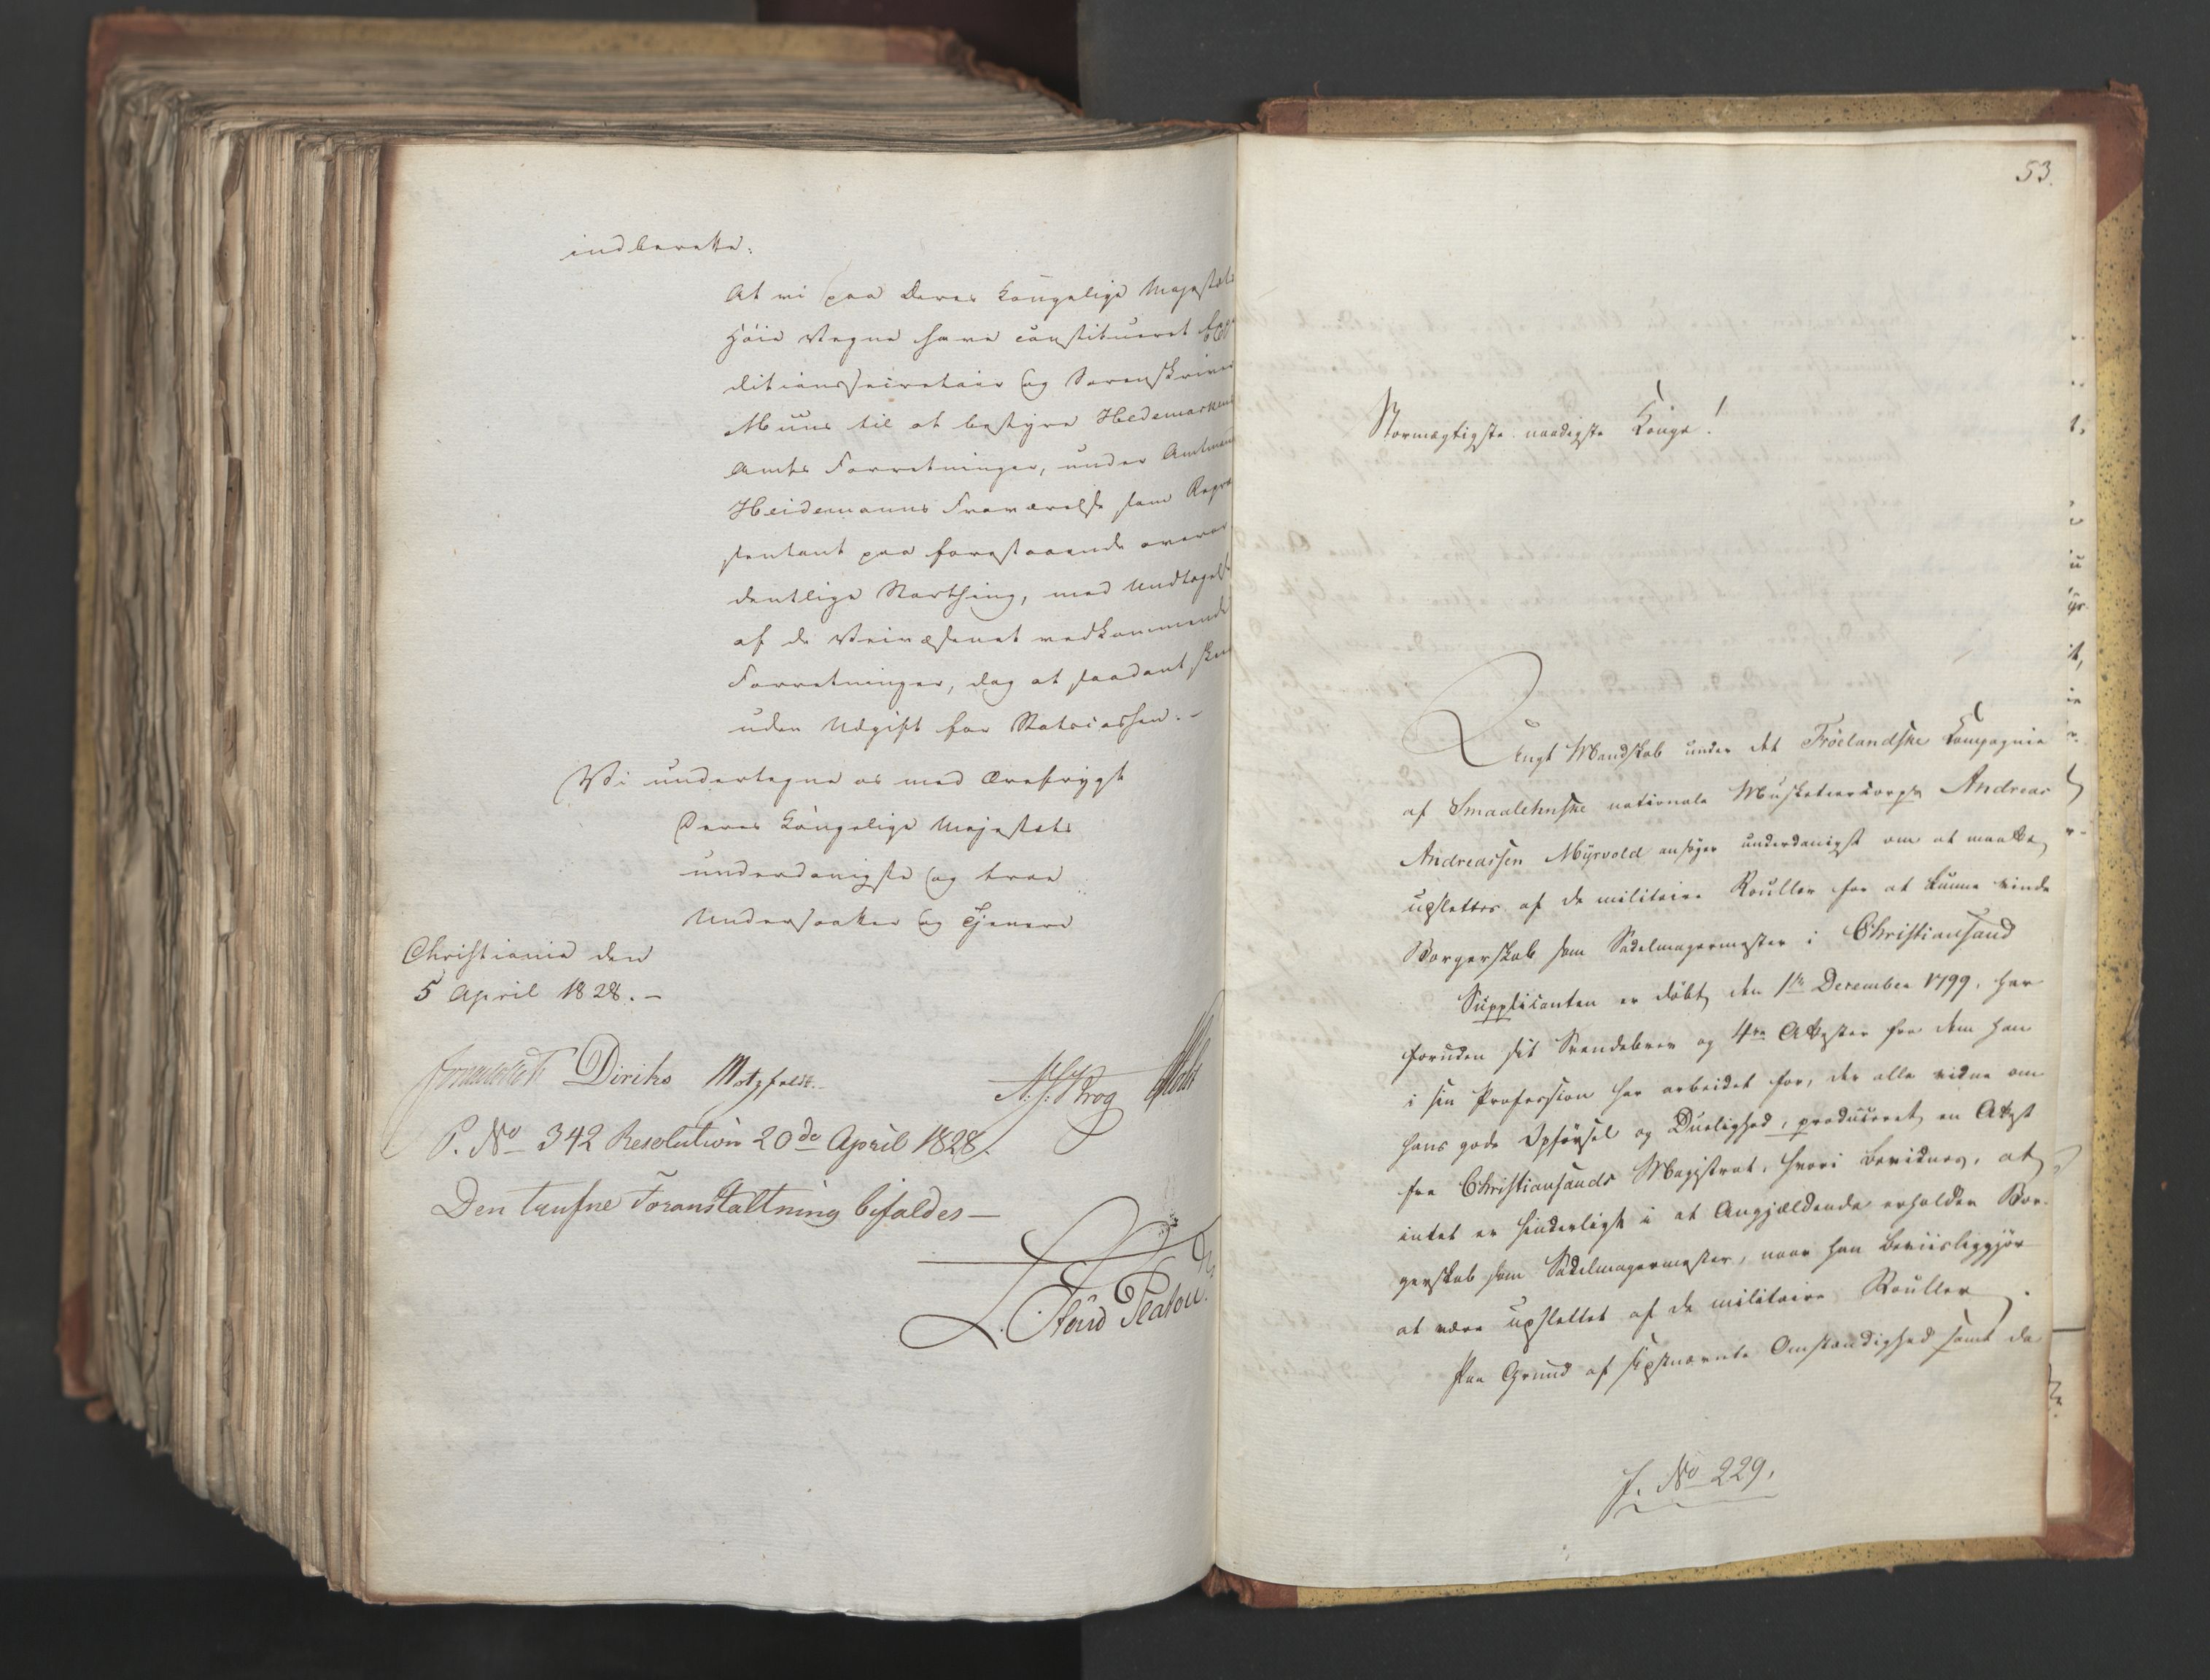 indberette:
At vi paa Deres Kongelige Majestæts
høie Vegne have constitueret Expe
ditionssecretair og Sorenskriver
Muus til at bestyre Hedemarkens
Amts Forretninger, under Amtmand
Heidemanns Fraværelse som Repræ
sentant paa forestaaende overor
dentlige Storthing, med Undtagelse
af de Veivæsenet vedkommende
Forretninger, dog at saadant skeer
uden Udgift for Statscassen. -
Vi undertegne os med Ærefrygt
Deres Kongelige Majestæts
underdanigste og troe
Undersaatter og Tjenere
Christiania den
5 April 1828. -
Diriks Motzfeldt. Krog
P. No 342 Resolution 20de April 1828.
Den trufne Foranstaltning bifaldes -
53.
Stormægtigste naadigste Konge!
Ungt Mandskab under det Tröelandske Kompagnie
af Smaalehnske nationale Musketeercorps Andreas
Andreassen Myrvold ansøger underdanigst om at maatte
udslettes af de militaire Rouller for at kunne vinde
Borgerskab som Sadelmagermester i Christiansand
Supplicanten er døbt den 1te December 1799, har
foruden sit Svendebrev og 4re Attester fra dem han
i sin Profession har arbeidet for, der alle vidne om
hans gode Opførsel og Duelighed, produceret en Attest
fra Christiansands Magistrat, hvori bevidnes, at
intet er hinderligt i at Angjældende erholder Bor-
gerskab som Sadelmagermester, naar han beviisliggjør
at være udslettet af de militaire Rouller.
Paa Grund af sidstnævnte Omstændighed samt da
J. No 229.